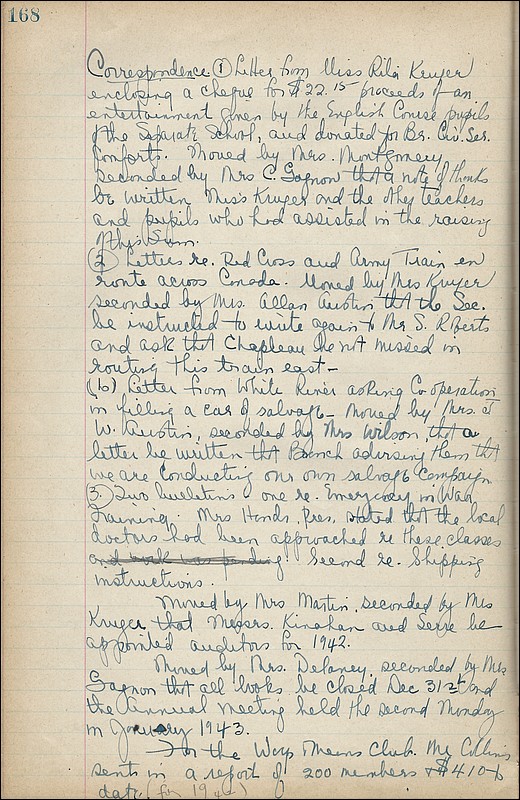 168
Correspondence ① Letter from Miss Rila Kruger
enclosing a cheque for $22.15 proceeds of an
entertainment given by the English Course pupils
of the Separate School, and donated for Br. Civ. Ser.
Comforts. Moved by Mrs. Montgomery,
seconded by Mrs C. Gagnon that a note of thanks
be written Miss Kruger and the other teachers
and pupils who had assisted in the raising
of this sum.
② Letters re. Red Cross and Army Train en
route across Canada. Moved by Mrs Kruger
seconded by Mrs. Allan Austin that the Sec.
be instructed to write again to Mr S. Roberts
and ask that Chapleau be not missed in
routing this train east –
(b) Letter from White River asking Co operation
in filling a car of salvage – Moved by Mrs.
W. Austin, seconded by Mrs Wilson that a
letter be written that Branch advising them that
we are conducting our own salvage Campaign
3. Two Bulletins one re. Emergency in War
Training. Mrs Hands, Pres. stated that the local
doctors had been approached re these classes
and work was pending. Second re. Shipping
instructions.
Moved by Mrs Martin, seconded by Mrs
Kruger that Messrs. Kinahan and Serre be
appointed auditors for 1942.
Moved by Mrs. Delaney, seconded by Mrs
Gagnon that all books be closed Dec 31st and
the Annual meeting held the second Monday
in January 1943.
For the Ways Means Club. Mr Collins
sents in a report of 200 members & $410 to
date (for 1942)